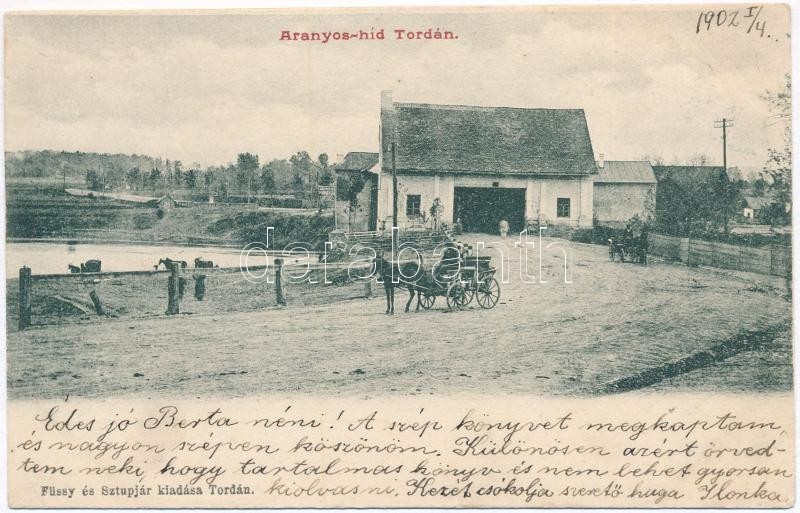 Aranyos-híd Tordán.
1902 I/4.
darabanth
Édes jó Berta néni! A szép könyvet megkaptam,
és nagyon szépen köszönöm. Különösen azért örved-
tem neki, hogy tartalmas könyv és nem lehet gyorsan
kiolvasni. Kezét csókolja szerető huga Ilonka
Füssy és Sztupjár kiadása Tordán.